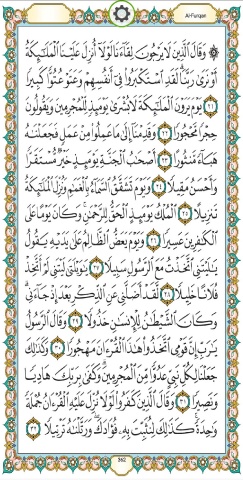 Al-Furqan
وَقَالَ الَّذِينَ لَا يَرْجُونَ لِقَاءَنَا لَوْلَا أُنزِلَ عَلَيْنَا الْمَلَائِكَةُ
أَوْ نَرَىٰ رَبَّنَا لَقَدِ اسْتَكْبَرُوا فِي أَنفُسِهِمْ وَعَتَوْ عُتُوًّا كَبِيرًا
٢١ يَوْمَ يَرَوْنَ الْمَلَائِكَةَ لَا بُشْرَىٰ يَوْمَئِذٍ لِّلْمُجْرِمِينَ وَيَقُولُونَ
حِجْرًا مَّحْجُورًا ٢٢ وَقَدِمْنَا إِلَىٰ مَا عَمِلُوا مِنْ عَمَلٍ فَجَعَلْنَاهُ
هَبَاءً مَّنثُورًا ٢٣ أَصْحَابُ الْجَنَّةِ يَوْمَئِذٍ خَيْرٌ مُّسْتَقَرًّا
وَأَحْسَنُ مَقِيلًا ٢٤ وَيَوْمَ تَشَقَّقُ السَّمَاءُ بِالْغَمَامِ وَنُزِّلَ الْمَلَائِكَةُ
تَنزِيلًا ٢٥ الْمُلْكُ يَوْمَئِذٍ الْحَقُّ لِلرَّحْمَٰنِ وَكَانَ يَوْمًا عَلَى
الْكَافِرِينَ عَسِيرًا ٢٦ وَيَوْمَ يَعَضُّ الظَّالِمُ عَلَىٰ يَدَيْهِ يَقُولُ
يَا لَيْتَنِي اتَّخَذْتُ مَعَ الرَّسُولِ سَبِيلًا ٢٧ يَا وَيْلَتَىٰ لَيْتَنِي لَمْ أَتَّخِذْ
فُلَانًا خَلِيلًا ٢٨ لَّقَدْ أَضَلَّنِي عَنِ الذِّكْرِ بَعْدَ إِذْ جَاءَنِي
وَكَانَ الشَّيْطَانُ لِلْإِنسَانِ خَذُولًا ٢٩ وَقَالَ الرَّسُولُ
يَا رَبِّ إِنَّ قَوْمِي اتَّخَذُوا هَٰذَا الْقُرْآنَ مَهْجُورًا ٣٠ وَكَذَٰلِكَ
جَعَلْنَا لِكُلِّ نَبِيٍّ عَدُوًّا مِّنَ الْمُجْرِمِينَ وَكَفَىٰ بِرَبِّكَ هَادِيًا
وَنَصِيرًا ٣١ وَقَالَ الَّذِينَ كَفَرُوا لَوْلَا نُزِّلَ عَلَيْهِ الْقُرْآنُ جُمْلَةً
وَاحِدَةً كَذَٰلِكَ لِنُثَبِّتَ بِهِ فُؤَادَكَ وَرَتَّلْنَاهُ تَرْتِيلًا ٣٢
362